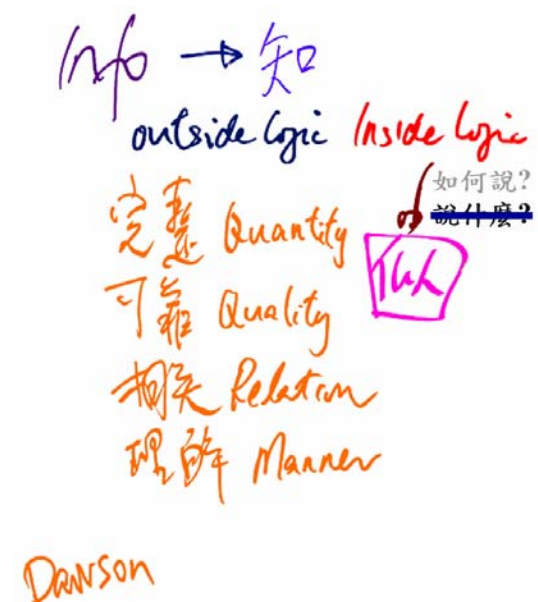 Info → 知
outside logic Inside logic
如何說?
說什麼?
完整 Quantity
可靠 Quality
相关 Relation
理解 Manner
Dawson